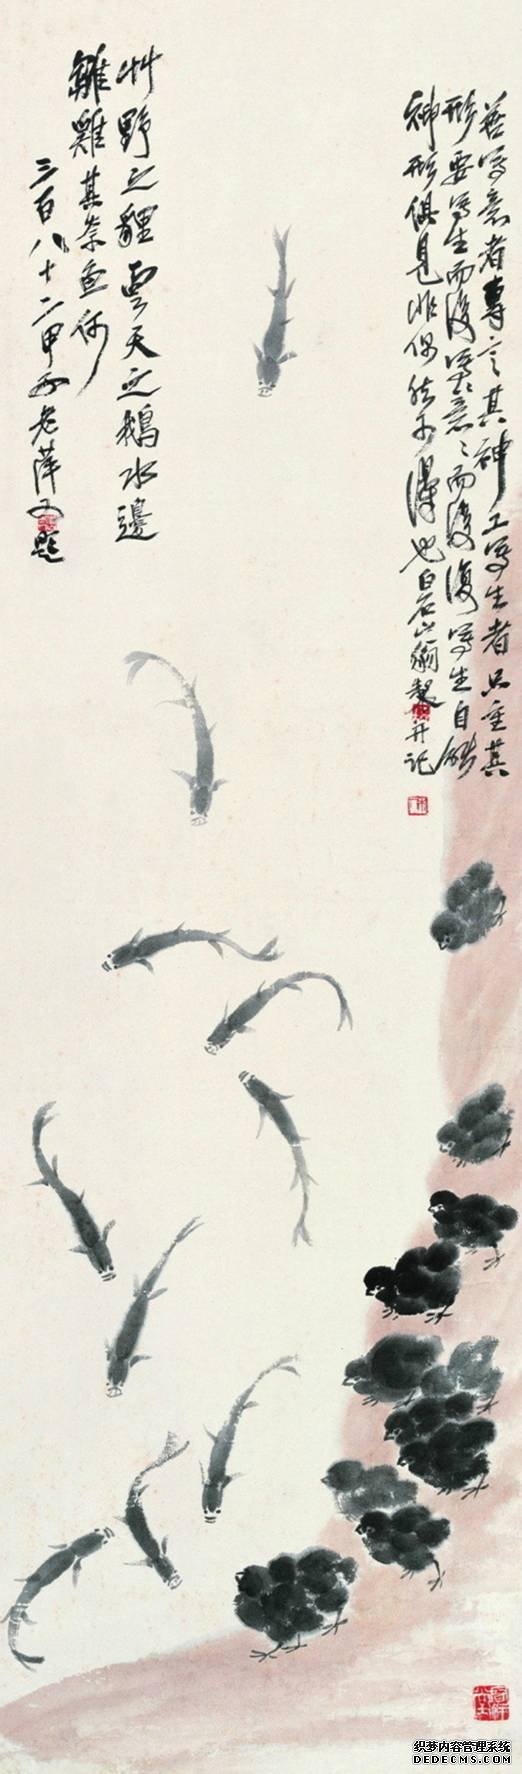 善写意者專言其神工写生者只重其
形要写生而後写意写意而後復写生自能
神形俱見非偶然可得也白石山翁製并记
艸野之貍雲天之鵝水邊
雛雞其奈魚何
三百八十二甲子老萍又題
织梦内容管理系统
DEDECMS.COM